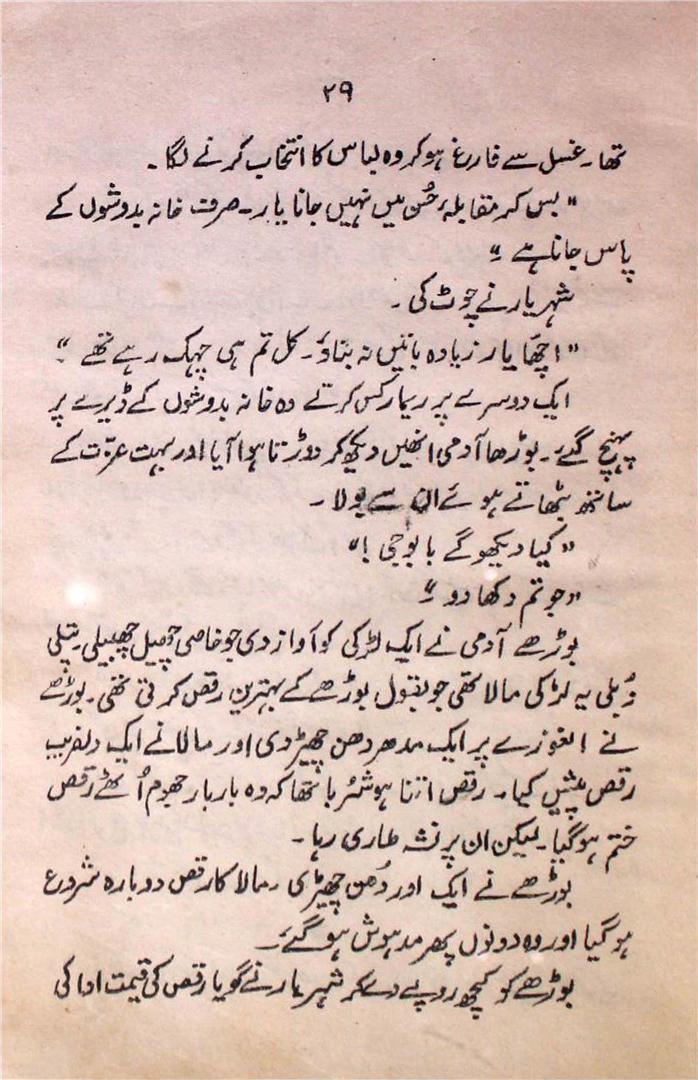 ۲۹
تھا۔ غسل سے فارغ ہوکر وہ لباس کا انتخاب کرنے لگا۔
"بس کر مقابلۂ حُسن میں نہیں جانا یار۔ صرف خانہ بدوشوں کے
پاس جانا ہے۔"
شہریار نے چوٹ کی۔
"اچھّا یار زیادہ باتیں نہ بناؤ۔ کل تم ہی چہک رہے تھے۔"
ایک دوسرے پر ریمارکس کرتے وہ خانہ بدوشوں کے ڈیرے پر
پہنچ گئے۔ بوڑھا آدمی انھیں دیکھ کر دوڑتا ہوا آیا اور بہت عزّت کے
ساتھ بٹھاتے ہوئے ان سے بولا۔
"کیا دیکھو گے بابوجی!"
"جو تم دکھا دو۔"
بوڑھے آدمی نے ایک لڑکی کو آواز دی جو خاصی چھیل چھبیلی۔ پتلی
دُبلی یہ لڑکی مالا تھی جو بقول بوڑھے کے بہترین رقص کرتی تھی۔ بوڑھے
نے الغوزے پر ایک مدھر دھن چھیڑ دی اور مالا نے ایک دلفریب
رقص پیش کیا۔ رقص اتنا ہوشرُبا تھا کہ وہ بار بار جھوم اُٹھے رقص
ختم ہوگیا۔ لیکن ان پر نشہ طاری رہا۔
بوڑھے نے ایک اور دُھن چھیڑی۔ مالا کا رقص دوبارہ شروع
ہوگیا اور وہ دونوں پھر مدہوش ہوگئے۔
بوڑھے کو کچھ روپے دے کر شہریار نے گویا رقص کی قیمت ادا کی